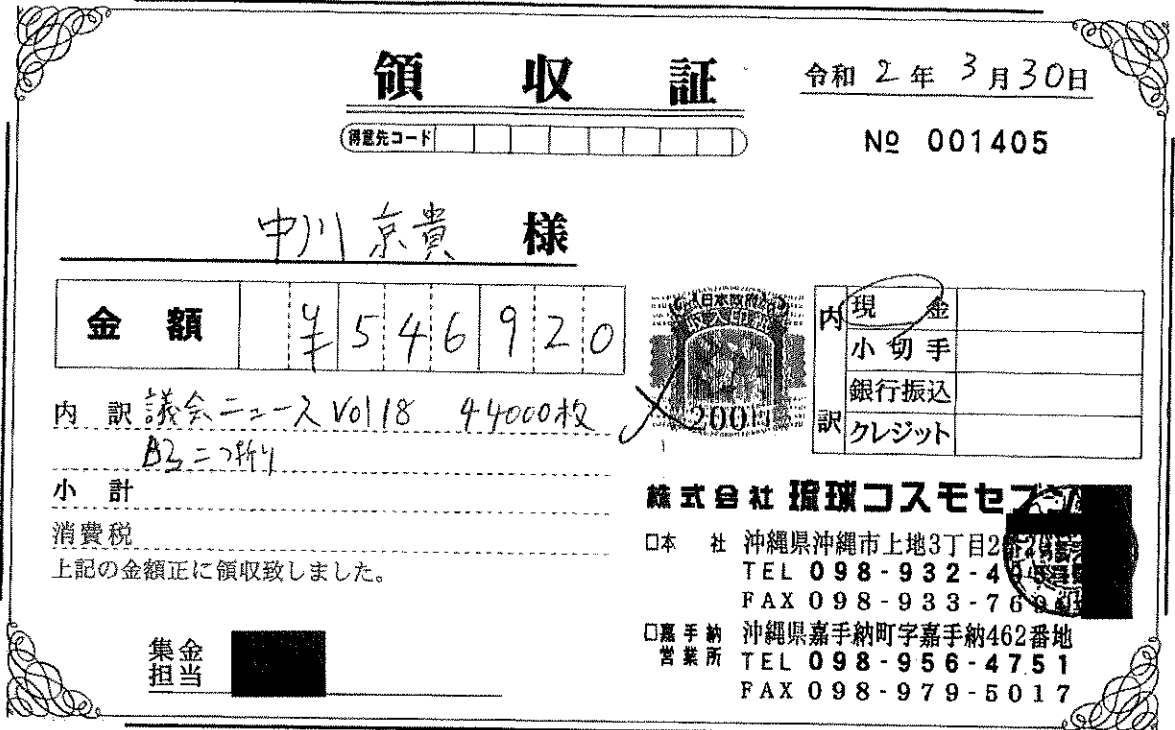 領収証
令和 2年 3月30日
得意先コード
№ 001405
中川 京貴 様
金額 ¥546920
日本政府
収入印紙
200円
内訳
現金
小切手
銀行振込
クレジット
内訳 議会ニュース Vol 18 44000枚
B3 二つ折り
小計
消費税
上記の金額正に領収致しました。
株式会社 琉球コスモセブン
□本社 沖縄県沖縄市上地3丁目
TEL 098-932-4
FAX 098-933-76
□嘉手納営業所 沖縄県嘉手納町字嘉手納462番地
TEL 098-956-4751
FAX 098-979-5017
集金担当